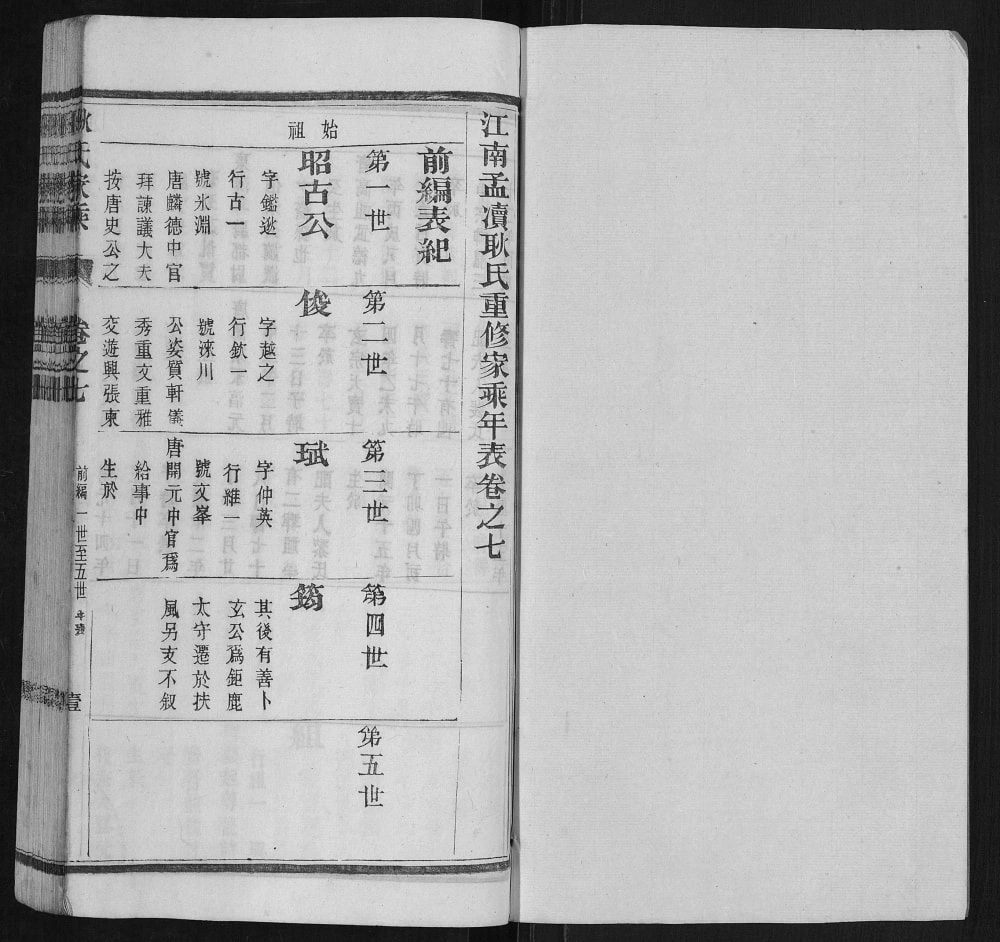 江南孟瀆耿氏重修家乘年表卷之七
前編表紀
始祖
第一世
昭古公
字鑑逖
行古一
號氷淵
唐麟德中官
拜諫議大夫
按唐史公之
第二世
俊
字越之
行欽一
號淶川
公姿質軒儀
秀重文重雅
交遊興張東
第三世
珷
字仲英
行維一
號文峯
唐開元中官爲
給事中
生於
第四世
筠
其後有善卜
玄公爲鉅鹿
太守遷於扶
風另支不叙
第五世
耿氏家乘
卷之七
前編一世至五世
年表
壹